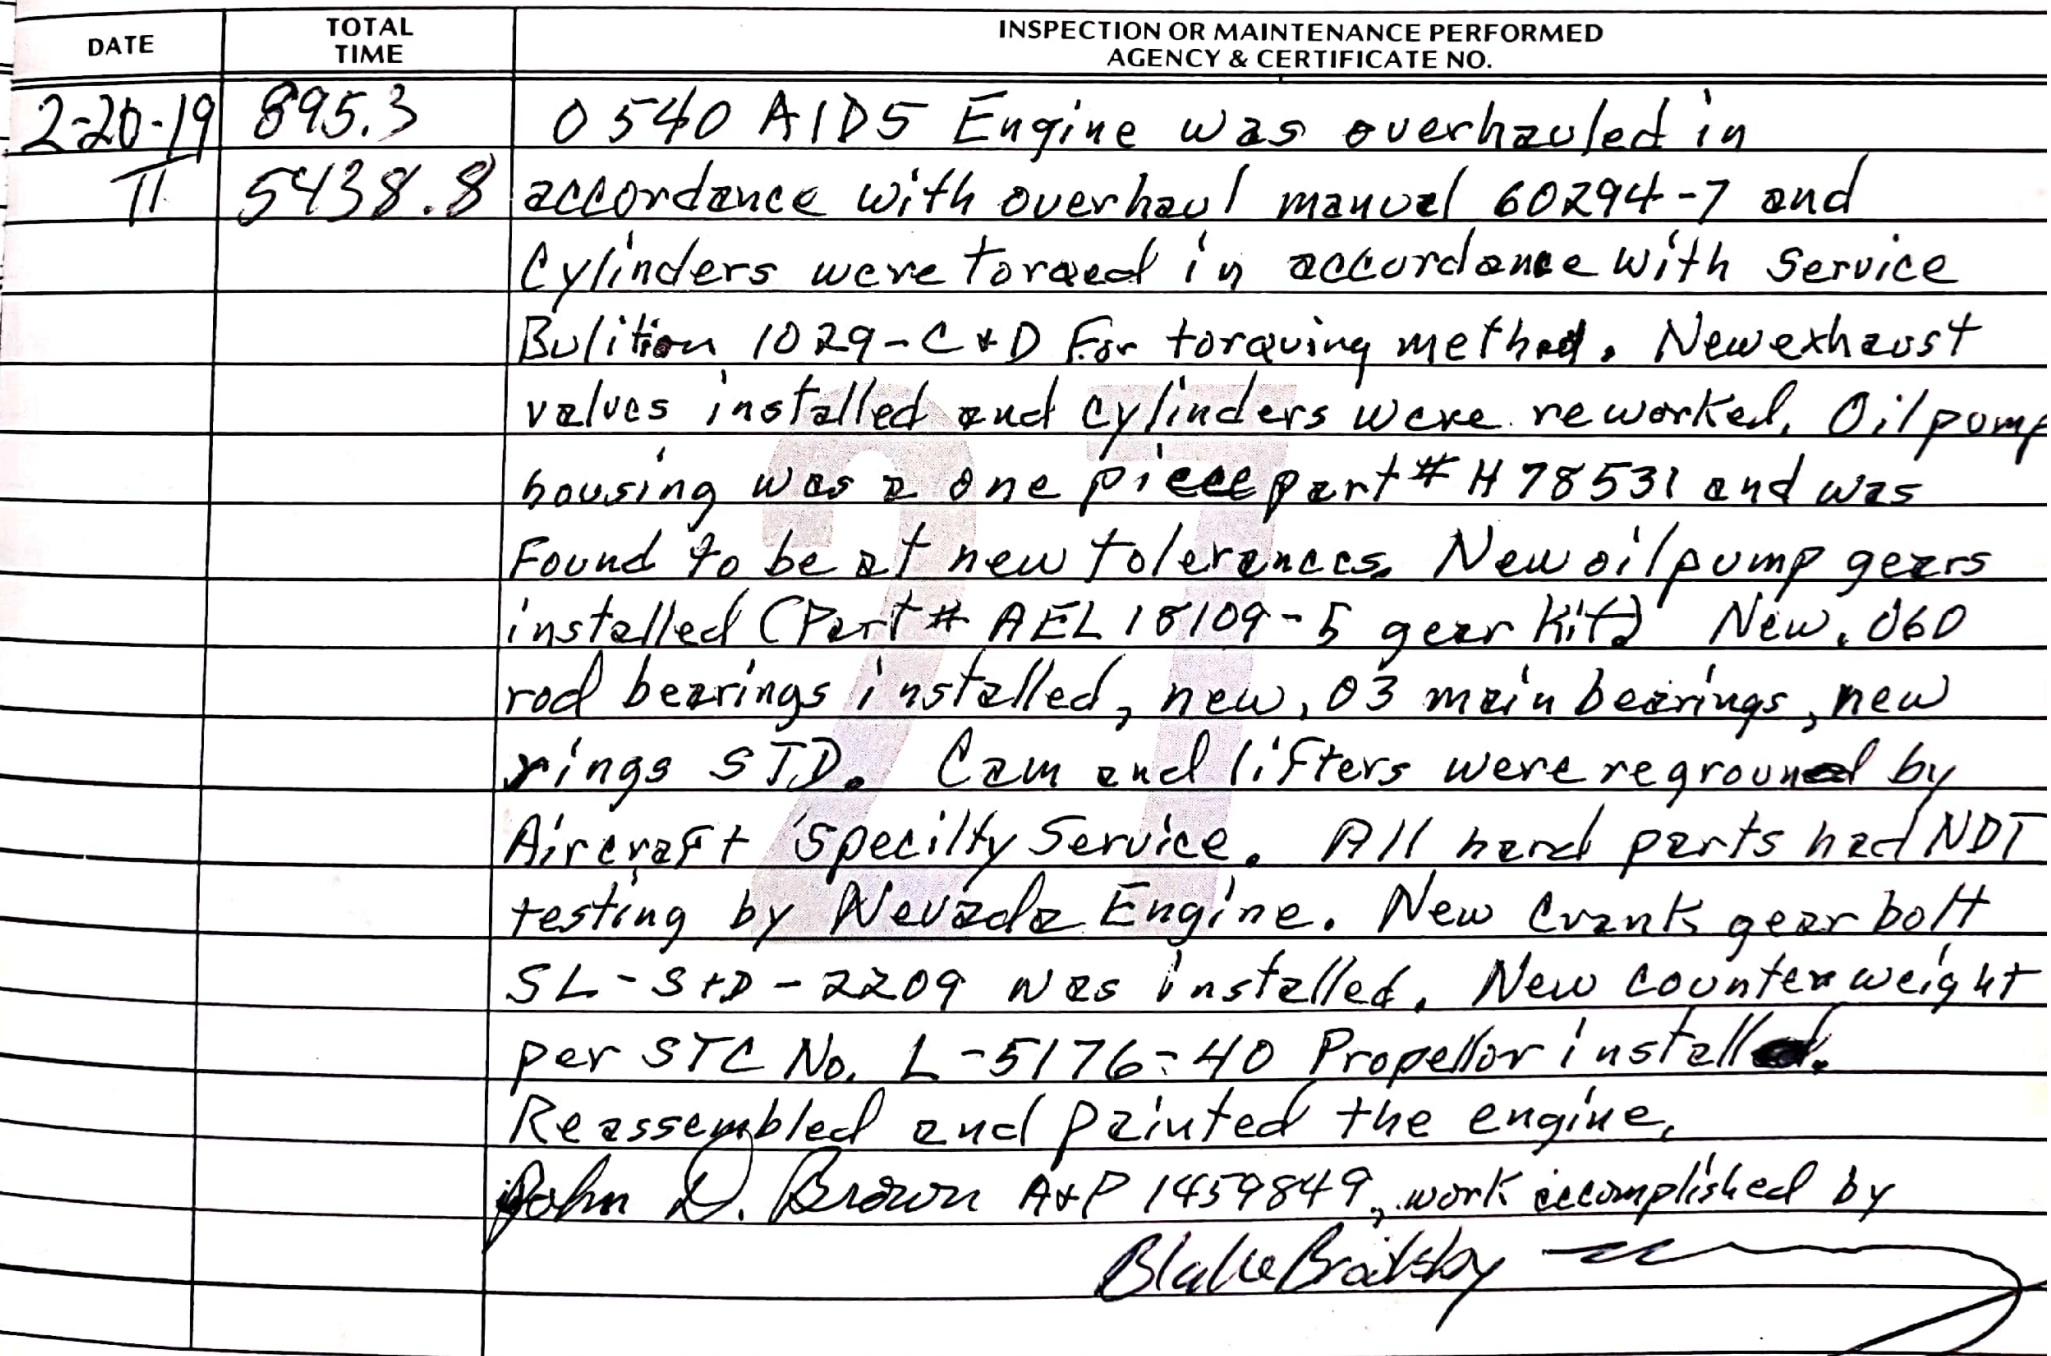 DATE
TOTAL TIME
INSPECTION OR MAINTENANCE PERFORMED
AGENCY & CERTIFICATE NO.
2-20-19 895.3 O 540 A1D5 Engine was overhauled in
TT 5438.8 accordance with overhaul manual 60294-7 and
Cylinders were torqed in accordance with Service
Bulition 1029-C+D For torquing method. New exhaust
valves installed and cylinders were reworked. Oil pump
housing was a one piece part # H 78531 and was
Found to be at new tolerances. New oil pump gears
installed (Part # AEL 18109-5 gear kit) New .060
rod bearings installed, new .03 main bearings, new
rings STD. Cam and lifters were reground by
Aircraft Specilty Service. All hard parts had NDT
testing by Nevada Engine. New Crank gear bolt
SL-STD-2209 was installed. New counterweight
per STC No. L-5176-40 Propellor installed.
Reassembled and painted the engine.
John D. Brown A+P 1459849, work accomplished by
Blake
27